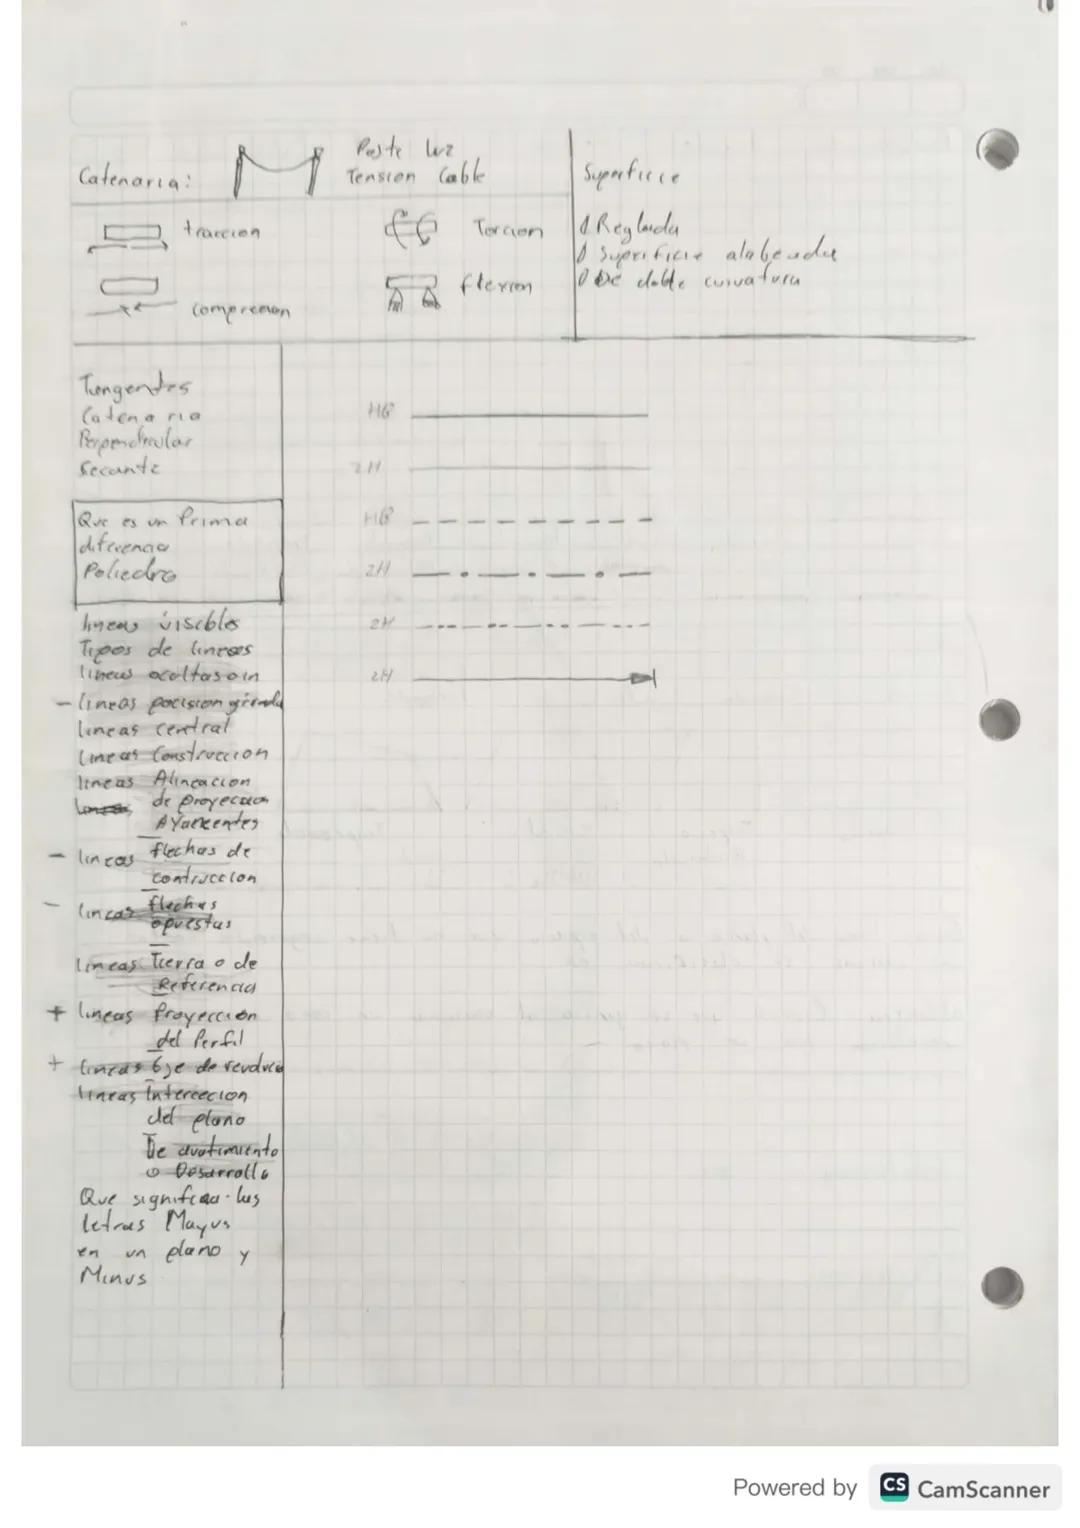 Catenaria:
Poste luz
Tension Cable
traccion
Torcion
comprecion
flexion
Superficie
Reglada
Superficie alabeada
De doble curvatura
Tangentes
Catenaria
Perpendicular
Secante
Que es un Prima
diferencia
Poliedro
lineas visebles
Tipos de lineas
lineas ocoltas o in
- lineas pocision girada
lineas central
lineas Construccion
lineas Alineacion
de proyeccion
- lineas flechas de
contruccion
- lineas flechas
opuestas
lineas Tierra o de
Referencia
+ lineas Proyeccion
del Perfil
+ lineas Eje de
lineas Intercecion
del plano
De avatimiento
o Desarrollo
Que significa las
letras Mayus
en un plano y
Minus
HB
2H
HB
2H
2H
2H
Powered by CS CamScanner